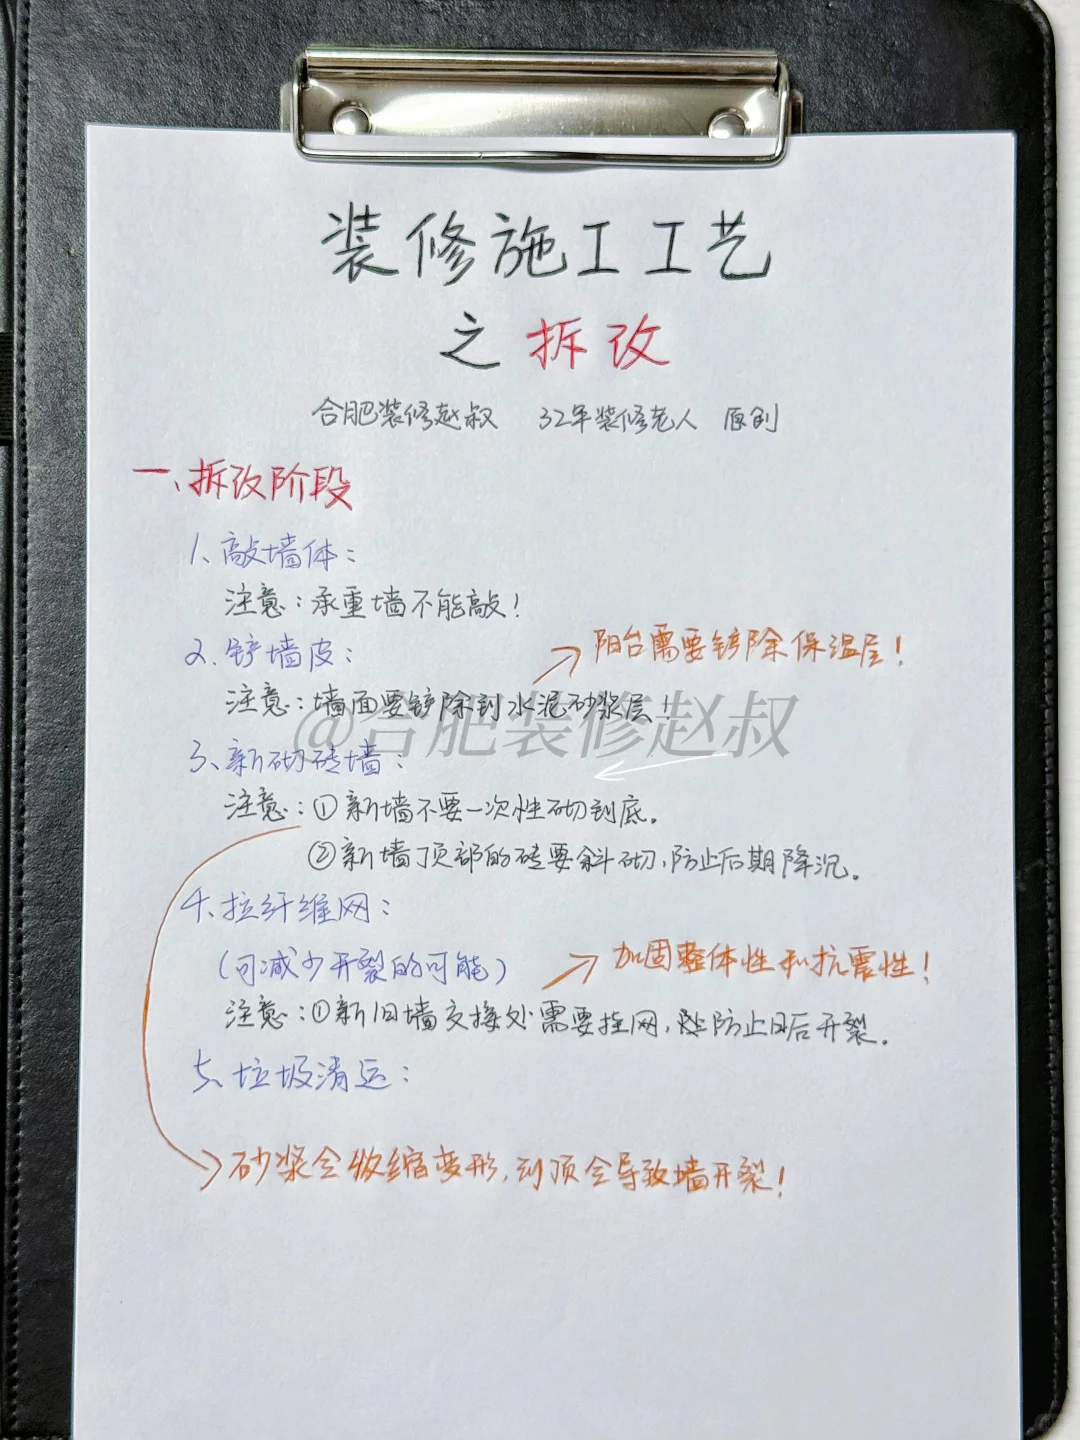 装修施工工艺
之拆改
合肥装修赵叔 32年装修老人 原创
一、拆改阶段
1、敲墙体：
注意：承重墙不能敲！
2、铲墙皮：
阳台需要铲除保温层！
注意：墙面要铲除到水泥砂浆层！
@合肥装修赵叔
3、新砌砖墙：
注意：①新墙不要一次性砌到底。
②新墙顶部的砖要斜砌，防止后期降沉。
4、拉纤维网：
（可减少开裂的可能）
加固整体性和抗震性！
注意：①新旧墙交接处需要挂网，防止日后开裂。
5、垃圾清运：
砂浆会收缩变形，到顶会导致墙开裂！